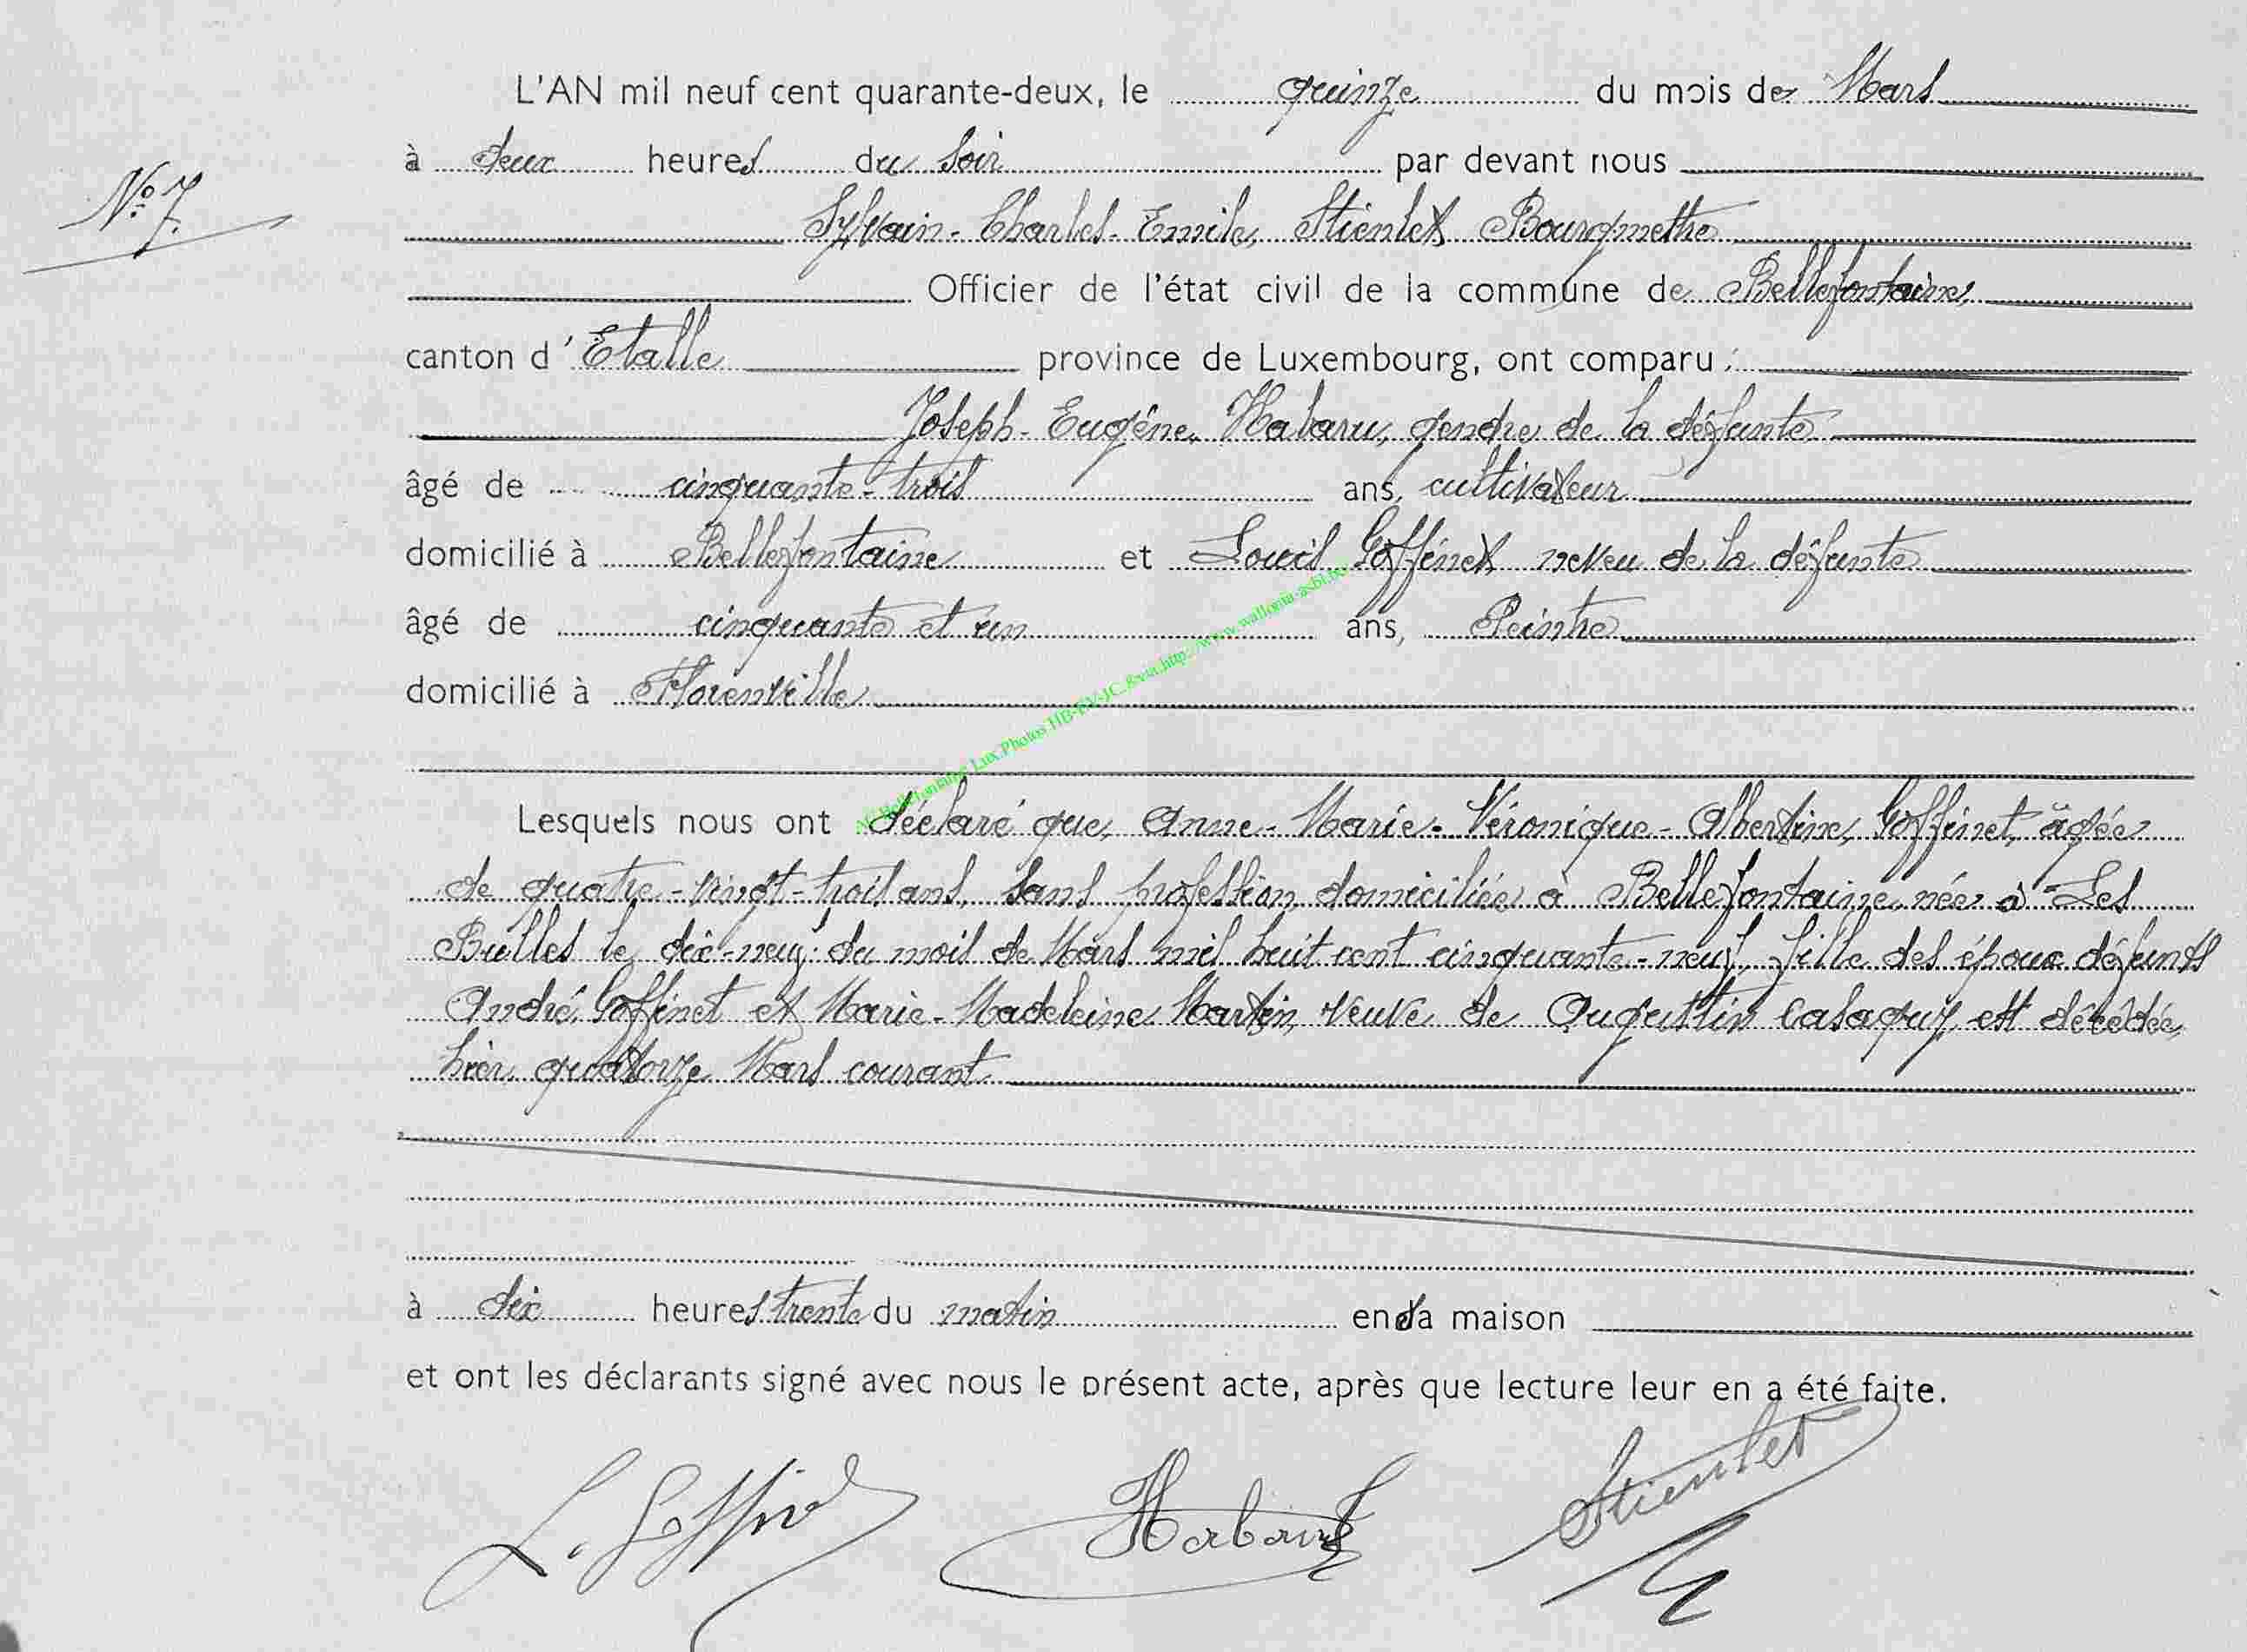 L'AN mil neuf cent quarante-deux, le quinze du mois de Mars
à deux heures du soir par devant nous
N° 7.
Sylvain-Charles-Emile, Stienlet Bourgmestre
Officier de l'état civil de la commune de Bellefontaine,
canton d'Etalle province de Luxembourg, ont comparu :
Joseph-Eugène, Habaru, gendre de la défunte
âgé de cinquante-trois ans, cultivateur
domicilié à Bellefontaine et Louis Goffinet neveu de la défunte
âgé de cinquante et un ans, Peintre
domicilié à Florenville
Lesquels nous ont déclaré que, Anne-Marie-Véronique-Albertine, Goffinet, âgée
de quatre-vingt-trois ans, sans profession, domiciliée à Bellefontaine, née à Les
Bulles le dix-neuf du mois de Mars mil huit cent cinquante-neuf, fille des époux défunts
André, Goffinet et Marie-Madeleine Martin, veuve de Augustin Casaquy, est décédée,
hier, quatorze Mars courant
à dix heures trente du matin en sa maison
et ont les déclarants signé avec nous le présent acte, après que lecture leur en a été faite.
L. Goffinet Habaru Stienlet